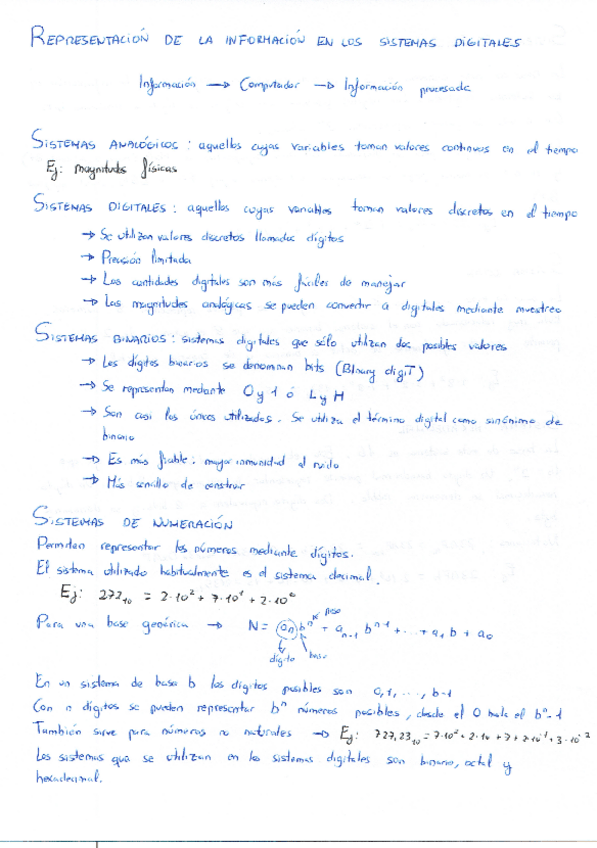 REPRESENTACIÓN DE LA INFORMACIÓN EN LOS SISTEMAS DIGITALES
Información → Computador → Información procesada
SISTEMAS ANALÓGICOS: aquellos cuyas variables toman valores continuos en el tiempo
Ej: magnitudes físicas
SISTEMAS DIGITALES: aquellos cuyas variables toman valores discretos en el tiempo
→ Se utilizan valores discretos llamados dígitos
→ Precisión limitada
→ Las cantidades digitales son más fáciles de manejar
→ Las magnitudes analógicas se pueden convertir a digitales mediante muestreo
SISTEMAS BINARIOS: sistemas digitales que sólo utilizan dos posibles valores
→ Los dígitos binarios se denominan bits (BInary digiT)
→ Se representan mediante 0 y 1 ó L y H
→ Son casi los únicos utilizados. Se utiliza el término digital como sinónimo de
binario
→ Es más fiable: mayor inmunidad al ruido
→ Más sencillo de construir
SISTEMAS DE NUMERACIÓN
Permiten representar los números mediante dígitos.
El sistema utilizado habitualmente es el sistema decimal.
Ej: 272₁₀ = 2·10² + 7·10¹ + 2·10⁰
Para una base genérica → N = aₙbⁿ + aₙ₋₁bⁿ⁻¹ + ... + a₁b + a₀
peso
dígito base
En un sistema de base b los dígitos posibles son 0, 1, ..., b-1
Con n dígitos se pueden representar bⁿ números posibles, desde el 0 hasta el bⁿ-1
También sirve para números no naturales → Ej: 727,23₁₀ = 7·10² + 2·10 + 7 + 2·10⁻¹ + 3·10⁻²
Los sistemas que se utilizan en los sistemas digitales son binario, octal y
hexadecimal.